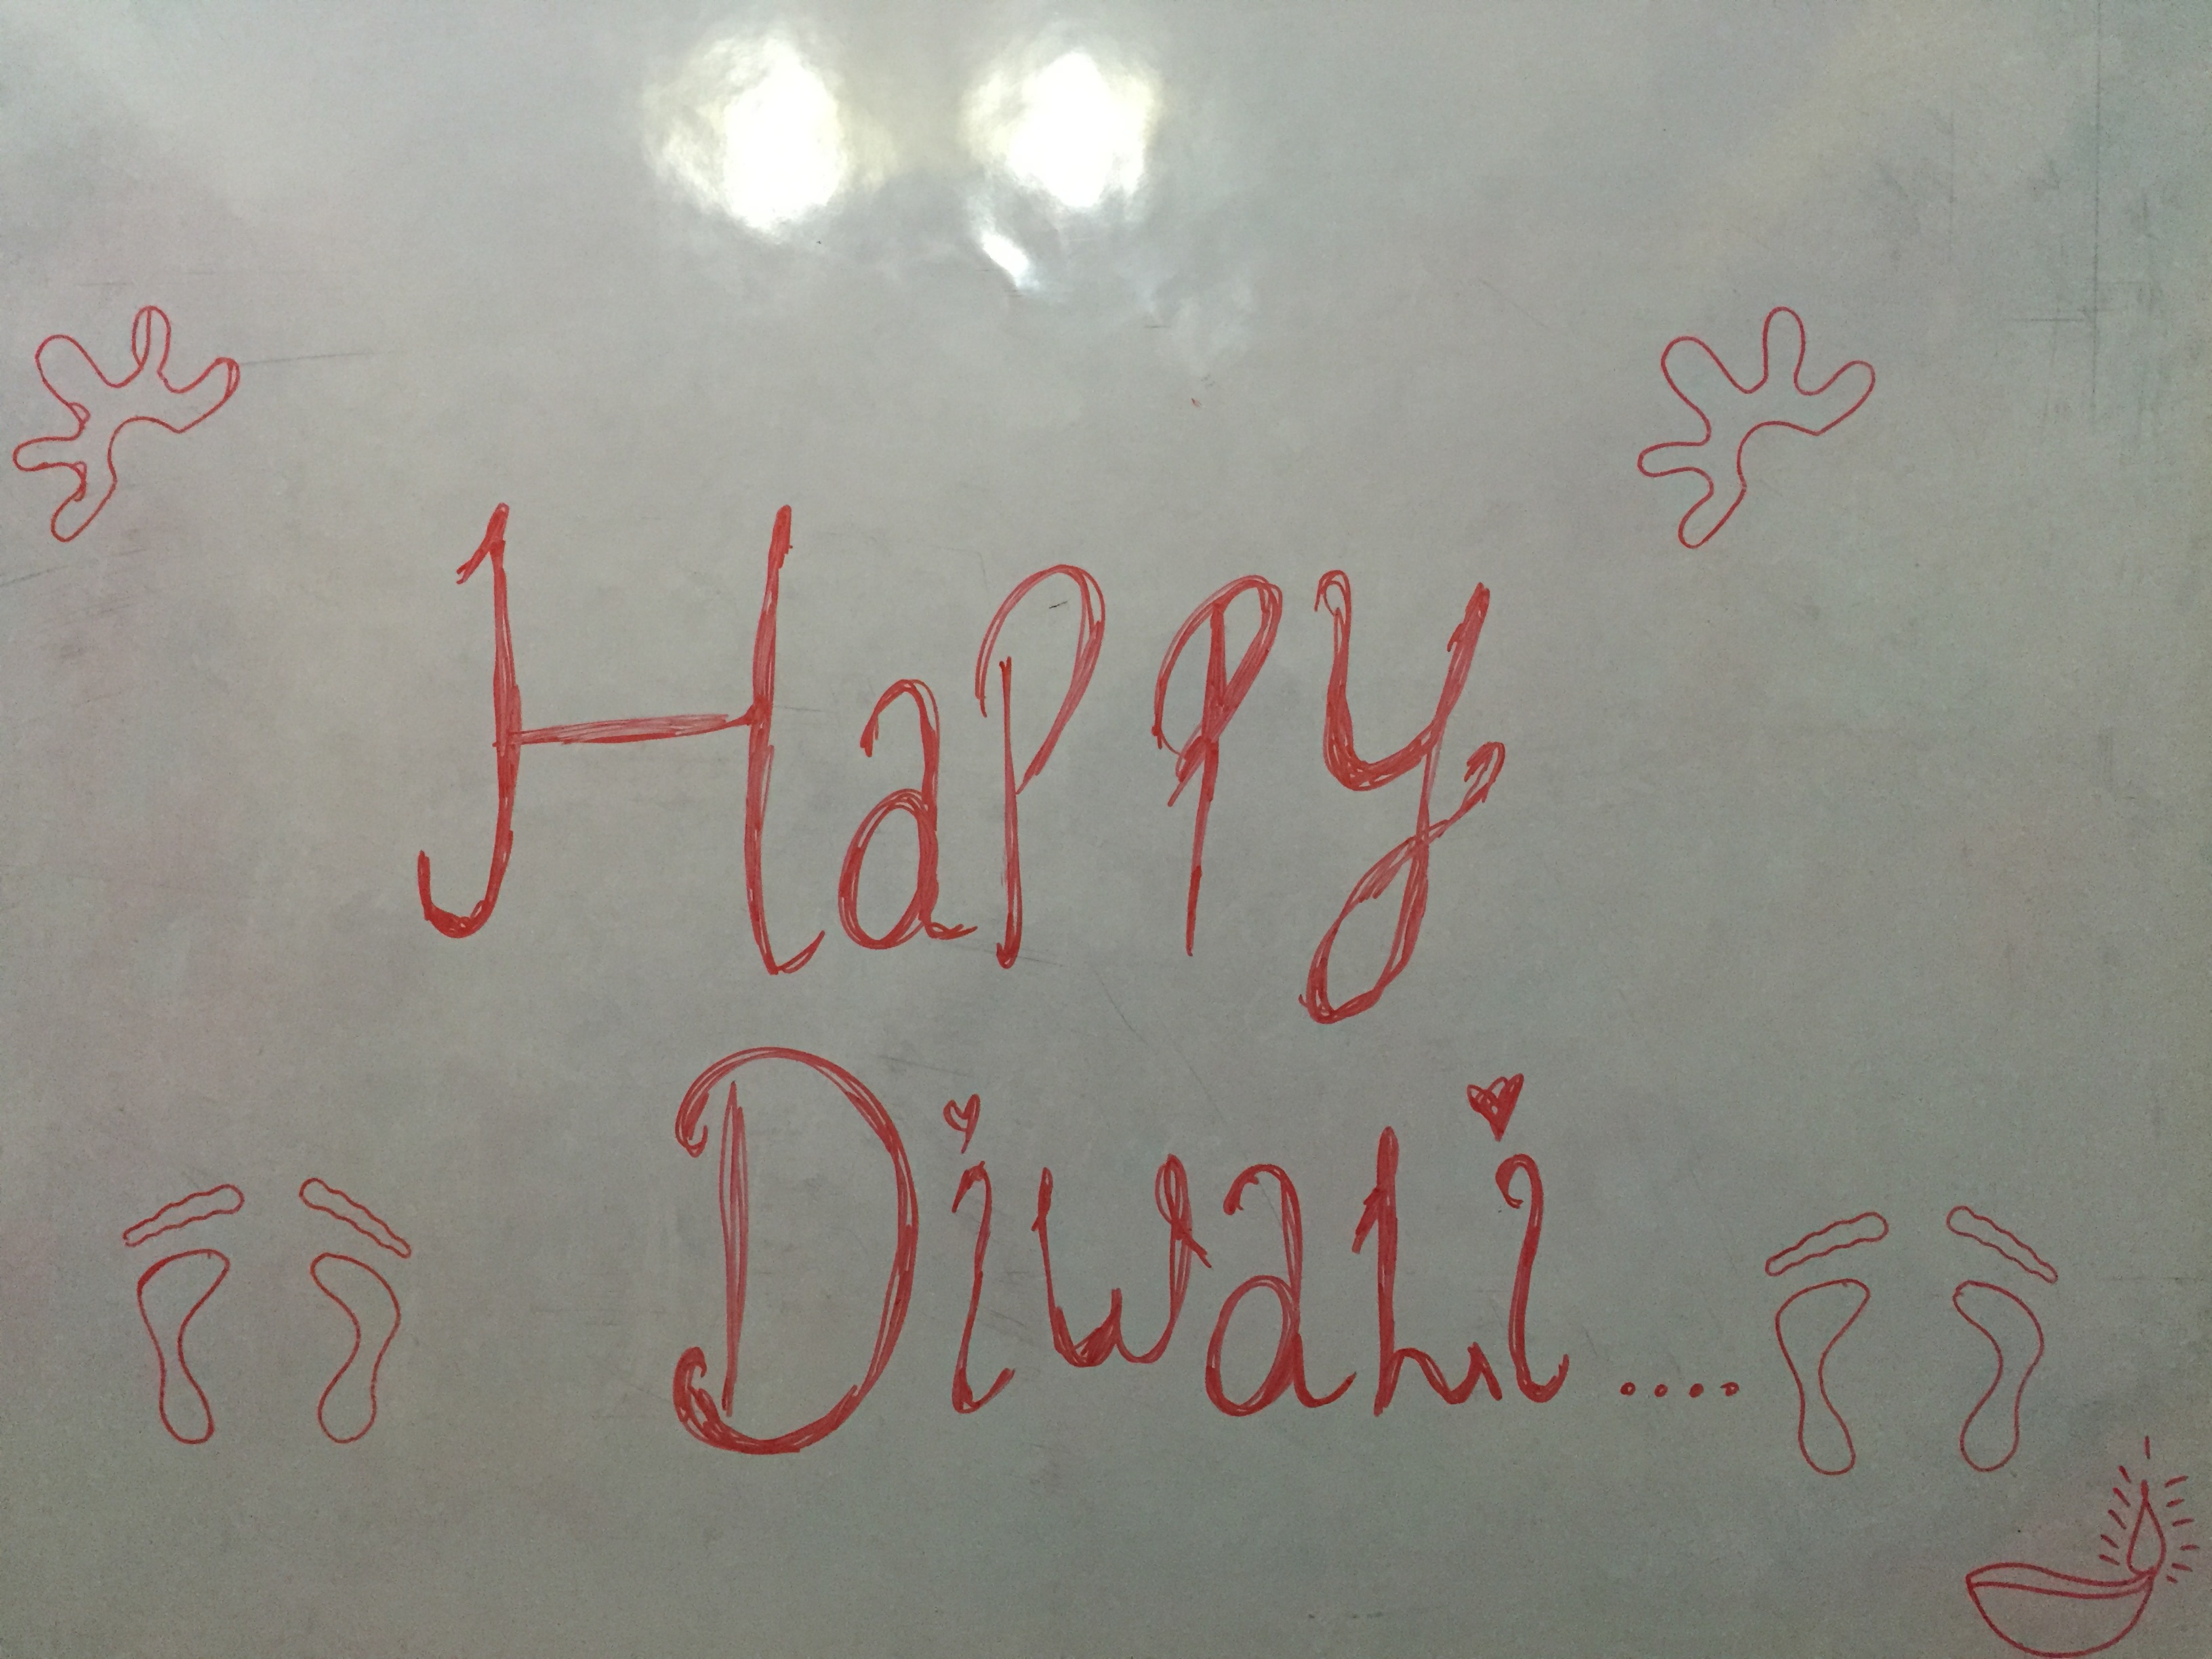 Happy
Diwali....